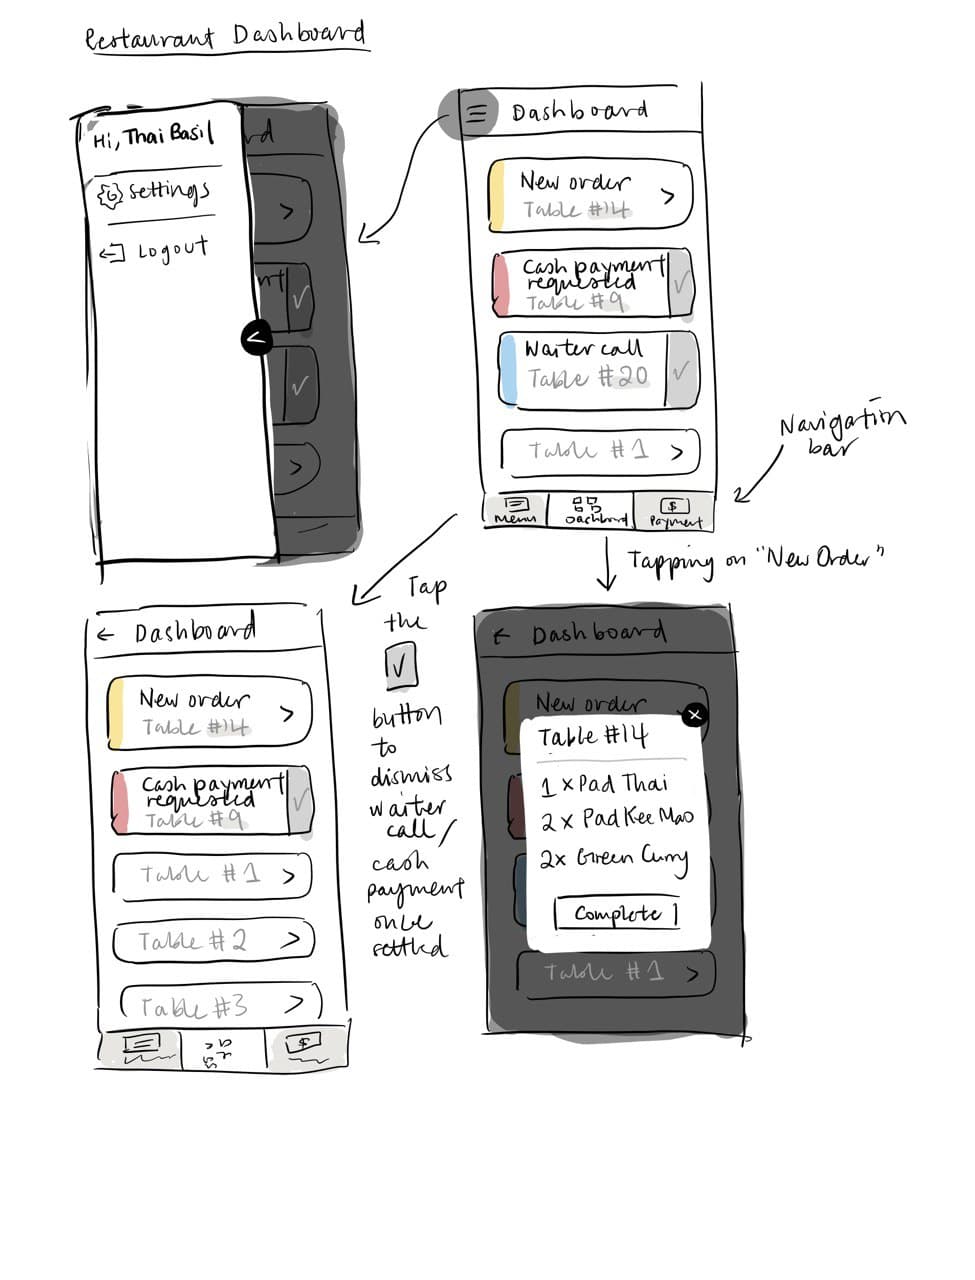 Restaurant Dashboard
Hi, Thai Basil
rd
Settings
Logout
nt
Dashboard
New order
Table #14
Cash payment
requested
Table #9
Waiter call
Table #20
Table #1
Menu
Dashboard
Payment
$
Navigation
bar
Tapping on "New Order"
Tap
the
button
to
dismiss
waiter
call/
cash
payment
once
settled
Dashboard
New order
Table #14
Cash payment
requested
Table #9
Table #1
Table #2
Table #3
$
Dashboard
New order
Table #14
1 x Pad Thai
2 x Pad Kee Mao
2x Green Curry
Complete
Table #1